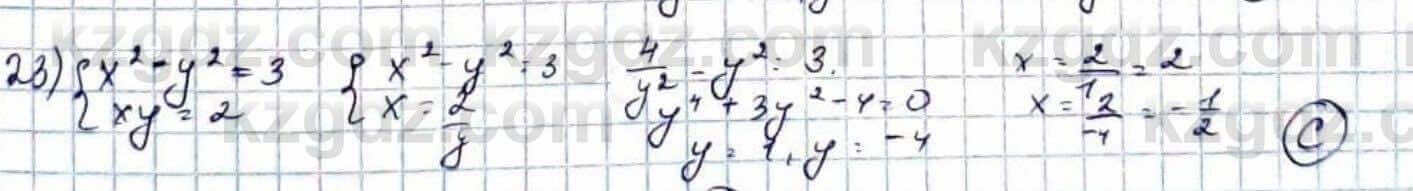 23) { x² - y² = 3
xy = 2
{ x² - y² = 3
x = 2/y
4/y² - y² = 3.
y⁴ + 3y² - 4 = 0
y = 1, y = -4
x = 2/1 = 2
x = 2/-4 = -1/2
C
kzgdz.com kzgdz.com kzgdz.com
kzgdz.com kzgdz.com